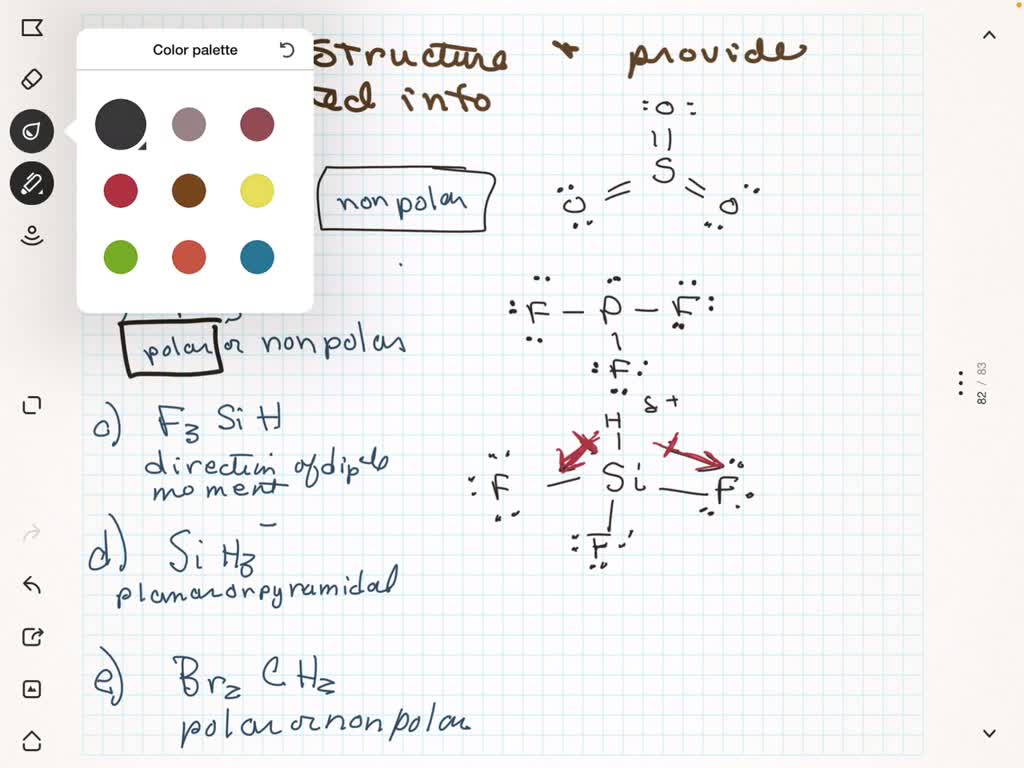 Color palette
Structure * provide
ted info
:O:
S
O O
nonpolar
F — P — F
F
polar or nonpolar
c) F3 SiH
direction of dipole
moment
H δ+
F Si F
F
d) SiH3-
planar or pyramidal
e) Br2 CH2
polar or nonpolar
82 / 83